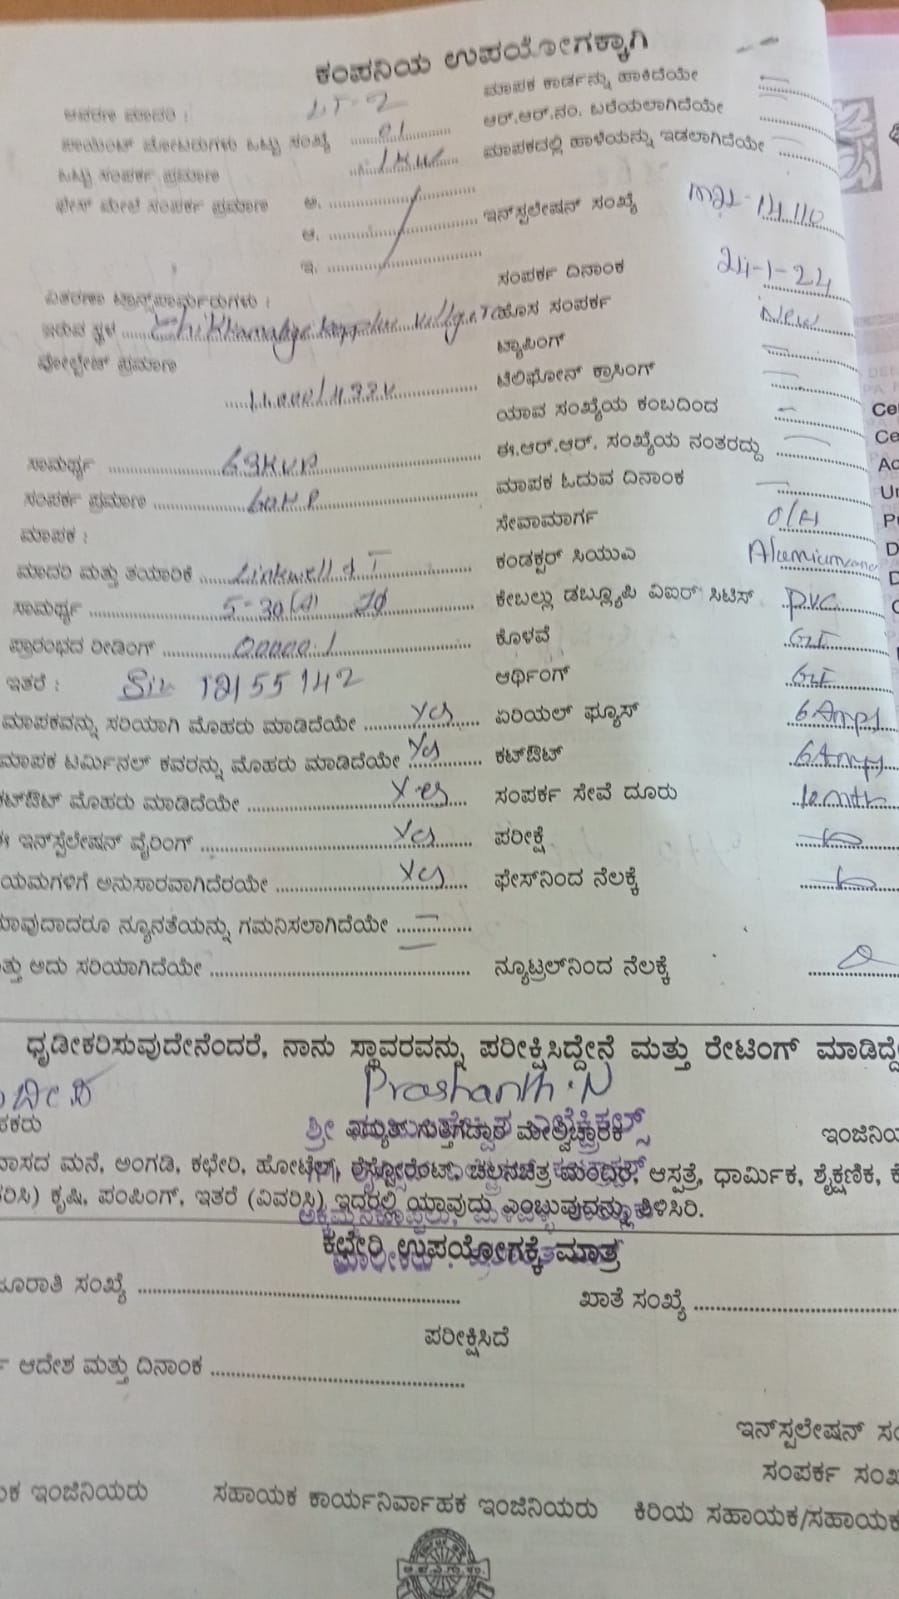 ಕಂಪನಿಯ ಉಪಯೋಗಕ್ಕಾಗಿ
ಆವರಣ ಮಾದರಿ : LT-2
ಪಾಯಿಂಟ್ ಮೋಟರುಗಳು ಒಟ್ಟು ಸಂಖ್ಯೆ 01
ಒಟ್ಟು ಸಂಪರ್ಕ ಪ್ರಮಾಣ 1KW
ಫೇಸ್ ಮೇಲೆ ಸಂಪರ್ಕ ಪ್ರಮಾಣ ಅ.
ಆ.
ಇ.
ವಿತರಣಾ ಟ್ರಾನ್ಸ್‌ಫಾರ್ಮರುಗಳು :
ಇರುವ ಸ್ಥಳ
ವೋಲ್ಟೇಜ್ ಪ್ರಮಾಣ
ಸಾಮರ್ಥ್ಯ 63KVA
ಸಂಪರ್ಕ ಪ್ರಮಾಣ 60HP
ಮಾಪಕ :
ಮಾದರಿ ಮತ್ತು ತಯಾರಿಕೆ Linkwell
ಸಾಮರ್ಥ್ಯ 5-30(A)
ಪ್ರಾರಂಭದ ರೀಡಿಂಗ್ 00000.1
ಇತರೆ : 12155142
ಮಾಪಕವನ್ನು ಸರಿಯಾಗಿ ಮೊಹರು ಮಾಡಿದೆಯೇ Yes
ಮಾಪಕ ಟರ್ಮಿನಲ್ ಕವರನ್ನು ಮೊಹರು ಮಾಡಿದೆಯೇ Yes
ಕಟ್‌ಔಟ್ ಮೊಹರು ಮಾಡಿದೆಯೇ Yes
ಈ ಇನ್‌ಸ್ಟಲೇಷನ್ ವೈರಿಂಗ್ Yes
ಯಮಗಳಿಗೆ ಅನುಸಾರವಾಗಿದೆರಯೇ Yes
ಯಾವುದಾದರೂ ನ್ಯೂನತೆಯನ್ನು ಗಮನಿಸಲಾಗಿದೆಯೇ —
ತ್ತು ಅದು ಸರಿಯಾಗಿದೆಯೇ
ಮಾಪಕ ಕಾರ್ಡನ್ನು ಹಾಕಿದೆಯೇ —
ಆರ್.ಆರ್.ನಂ. ಬರೆಯಲಾಗಿದೆಯೇ —
ಮಾಪಕದಲ್ಲಿ ಹಾಳೆಯನ್ನು ಇಡಲಾಗಿದೆಯೇ —
ಇನ್‌ಸ್ಟಲೇಷನ್ ಸಂಖ್ಯೆ
ಸಂಪರ್ಕ ದಿನಾಂಕ 24-1-24
ಹೊಸ ಸಂಪರ್ಕ New
ಟ್ಯಾಪಿಂಗ್ —
ಟೆಲಿಫೋನ್ ಕ್ರಾಸಿಂಗ್ —
ಯಾವ ಸಂಖ್ಯೆಯ ಕಂಬದಿಂದ —
ಈ.ಆರ್.ಆರ್. ಸಂಖ್ಯೆಯ ನಂತರದ್ದು —
ಮಾಪಕ ಓದುವ ದಿನಾಂಕ —
ಸೇವಾಮಾರ್ಗ O/H
ಕಂಡಕ್ಟರ್ ಸಿಯುಎ
ಕೇಬಲ್ಲು ಡಬ್ಲ್ಯೂಪಿ ವಿಐಆರ್ ಸಿಟಿಸ್ PVC
ಕೊಳವೆ GI
ಅರ್ಥಿಂಗ್ GI
ಏರಿಯಲ್ ಫ್ಯೂಸ್ 6 Amps
ಕಟ್‌ಔಟ್ 6 Amps
ಸಂಪರ್ಕ ಸೇವೆ ದೂರು
ಪರೀಕ್ಷೆ
ಫೇಸ್‌ನಿಂದ ನೆಲಕ್ಕೆ
ನ್ಯೂಟ್ರಲ್‌ನಿಂದ ನೆಲಕ್ಕೆ
ಧೃಡೀಕರಿಸುವುದೇನೆಂದರೆ, ನಾನು ಸ್ಥಾವರವನ್ನು ಪರೀಕ್ಷಿಸಿದ್ದೇನೆ ಮತ್ತು ರೇಟಿಂಗ್ ಮಾಡಿದ್ದೇ
Prashanth.N
ವಿದ್ಯುತ್ ಗುತ್ತಿಗೆದ್ದಾರ ಮೇಲ್ವಿಚಾರಕ ಇಂಜಿನಿಯ
ವಾಸದ ಮನೆ, ಅಂಗಡಿ, ಕಛೇರಿ, ಹೋಟೆಲ್, ರೆಸ್ಟೋರೆಂಟ್, ಚಲನಚಿತ್ರ ಮಂದಿರ, ಆಸ್ಪತ್ರೆ, ಧಾರ್ಮಿಕ, ಶೈಕ್ಷಣಿಕ, ಕೈ
ರಿಸಿ) ಕೃಷಿ, ಪಂಪಿಂಗ್, ಇತರೆ (ವಿವರಿಸಿ) ಇದರಲ್ಲಿ ಯಾವುದು ಎಂಬುವುದನ್ನು ತಿಳಿಸಿರಿ.
ಕಛೇರಿ ಉಪಯೋಗಕ್ಕೆ ಮಾತ್ರ
ಜೂರಾತಿ ಸಂಖ್ಯೆ ಖಾತೆ ಸಂಖ್ಯೆ
ಪರೀಕ್ಷಿಸಿದೆ
ಆದೇಶ ಮತ್ತು ದಿನಾಂಕ
ಇನ್‌ಸ್ಟಲೇಷನ್ ಸಂ
ಸಂಪರ್ಕ ಸಂಖ
ಯಕ ಇಂಜಿನಿಯರು ಸಹಾಯಕ ಕಾರ್ಯನಿರ್ವಾಹಕ ಇಂಜಿನಿಯರು ಕಿರಿಯ ಸಹಾಯಕ/ಸಹಾಯಕ